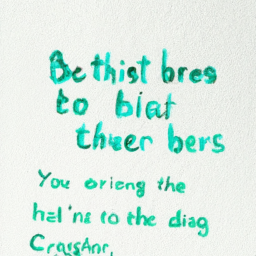 Be thist bres
to biat
thuer bers
You orieng the
hal 'ns to the diag
CragsAnr.